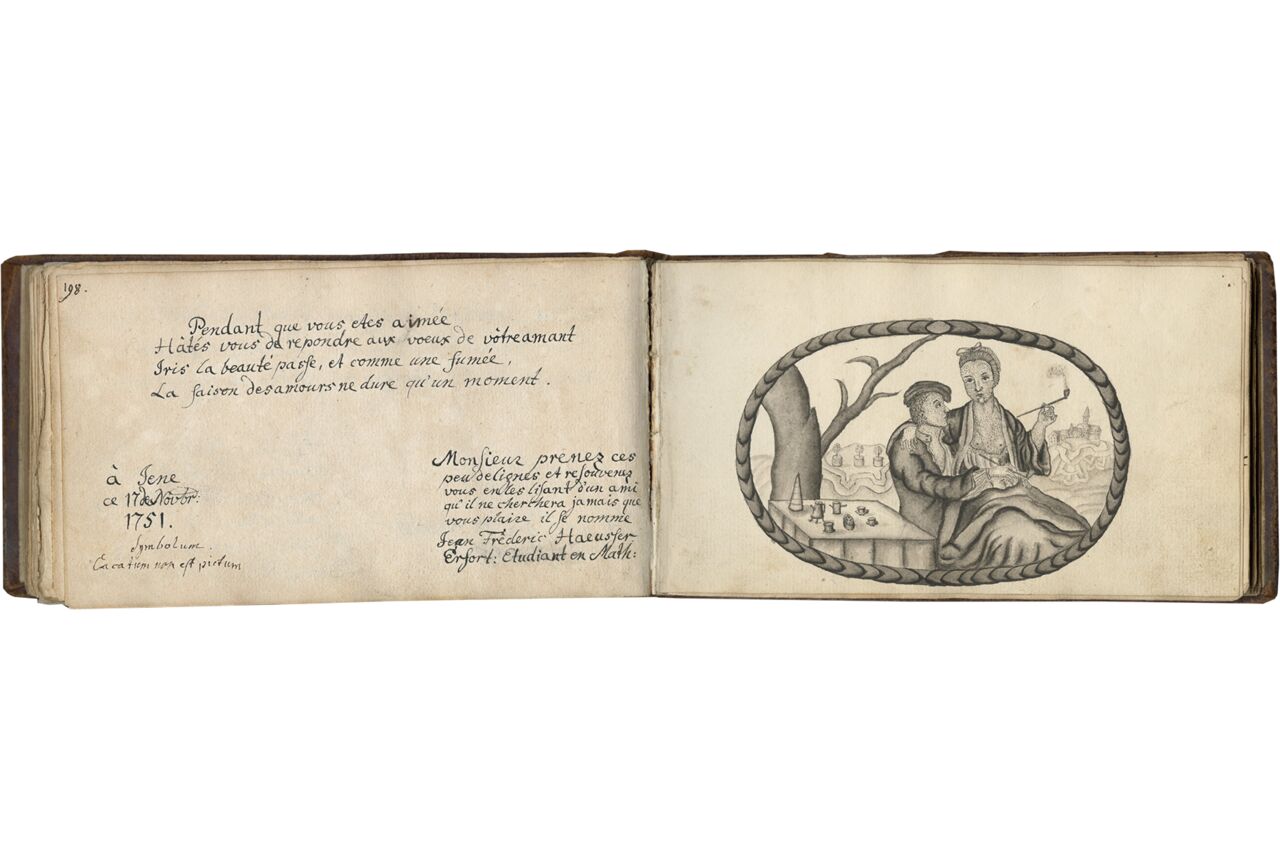 198.
Pendant que vous etes aimée
Hâtés vous de repondre aux voeux de vôtre amant
Iris la beauté passe, et comme une fumée,
La saison des amours ne dure qu'un moment.
à Jene
ce 17 de Novbr:
1751.
Symbolum.
Cacatum non est pictum
Monsieur prenez ces
peu de lignes et resouvenez
vous en les lisant d'un ami
qu'il ne cherchera jamais que
vous plaire il se nomme
Jean Fréderic Haeusser
Erfort: Etudiant en Math: